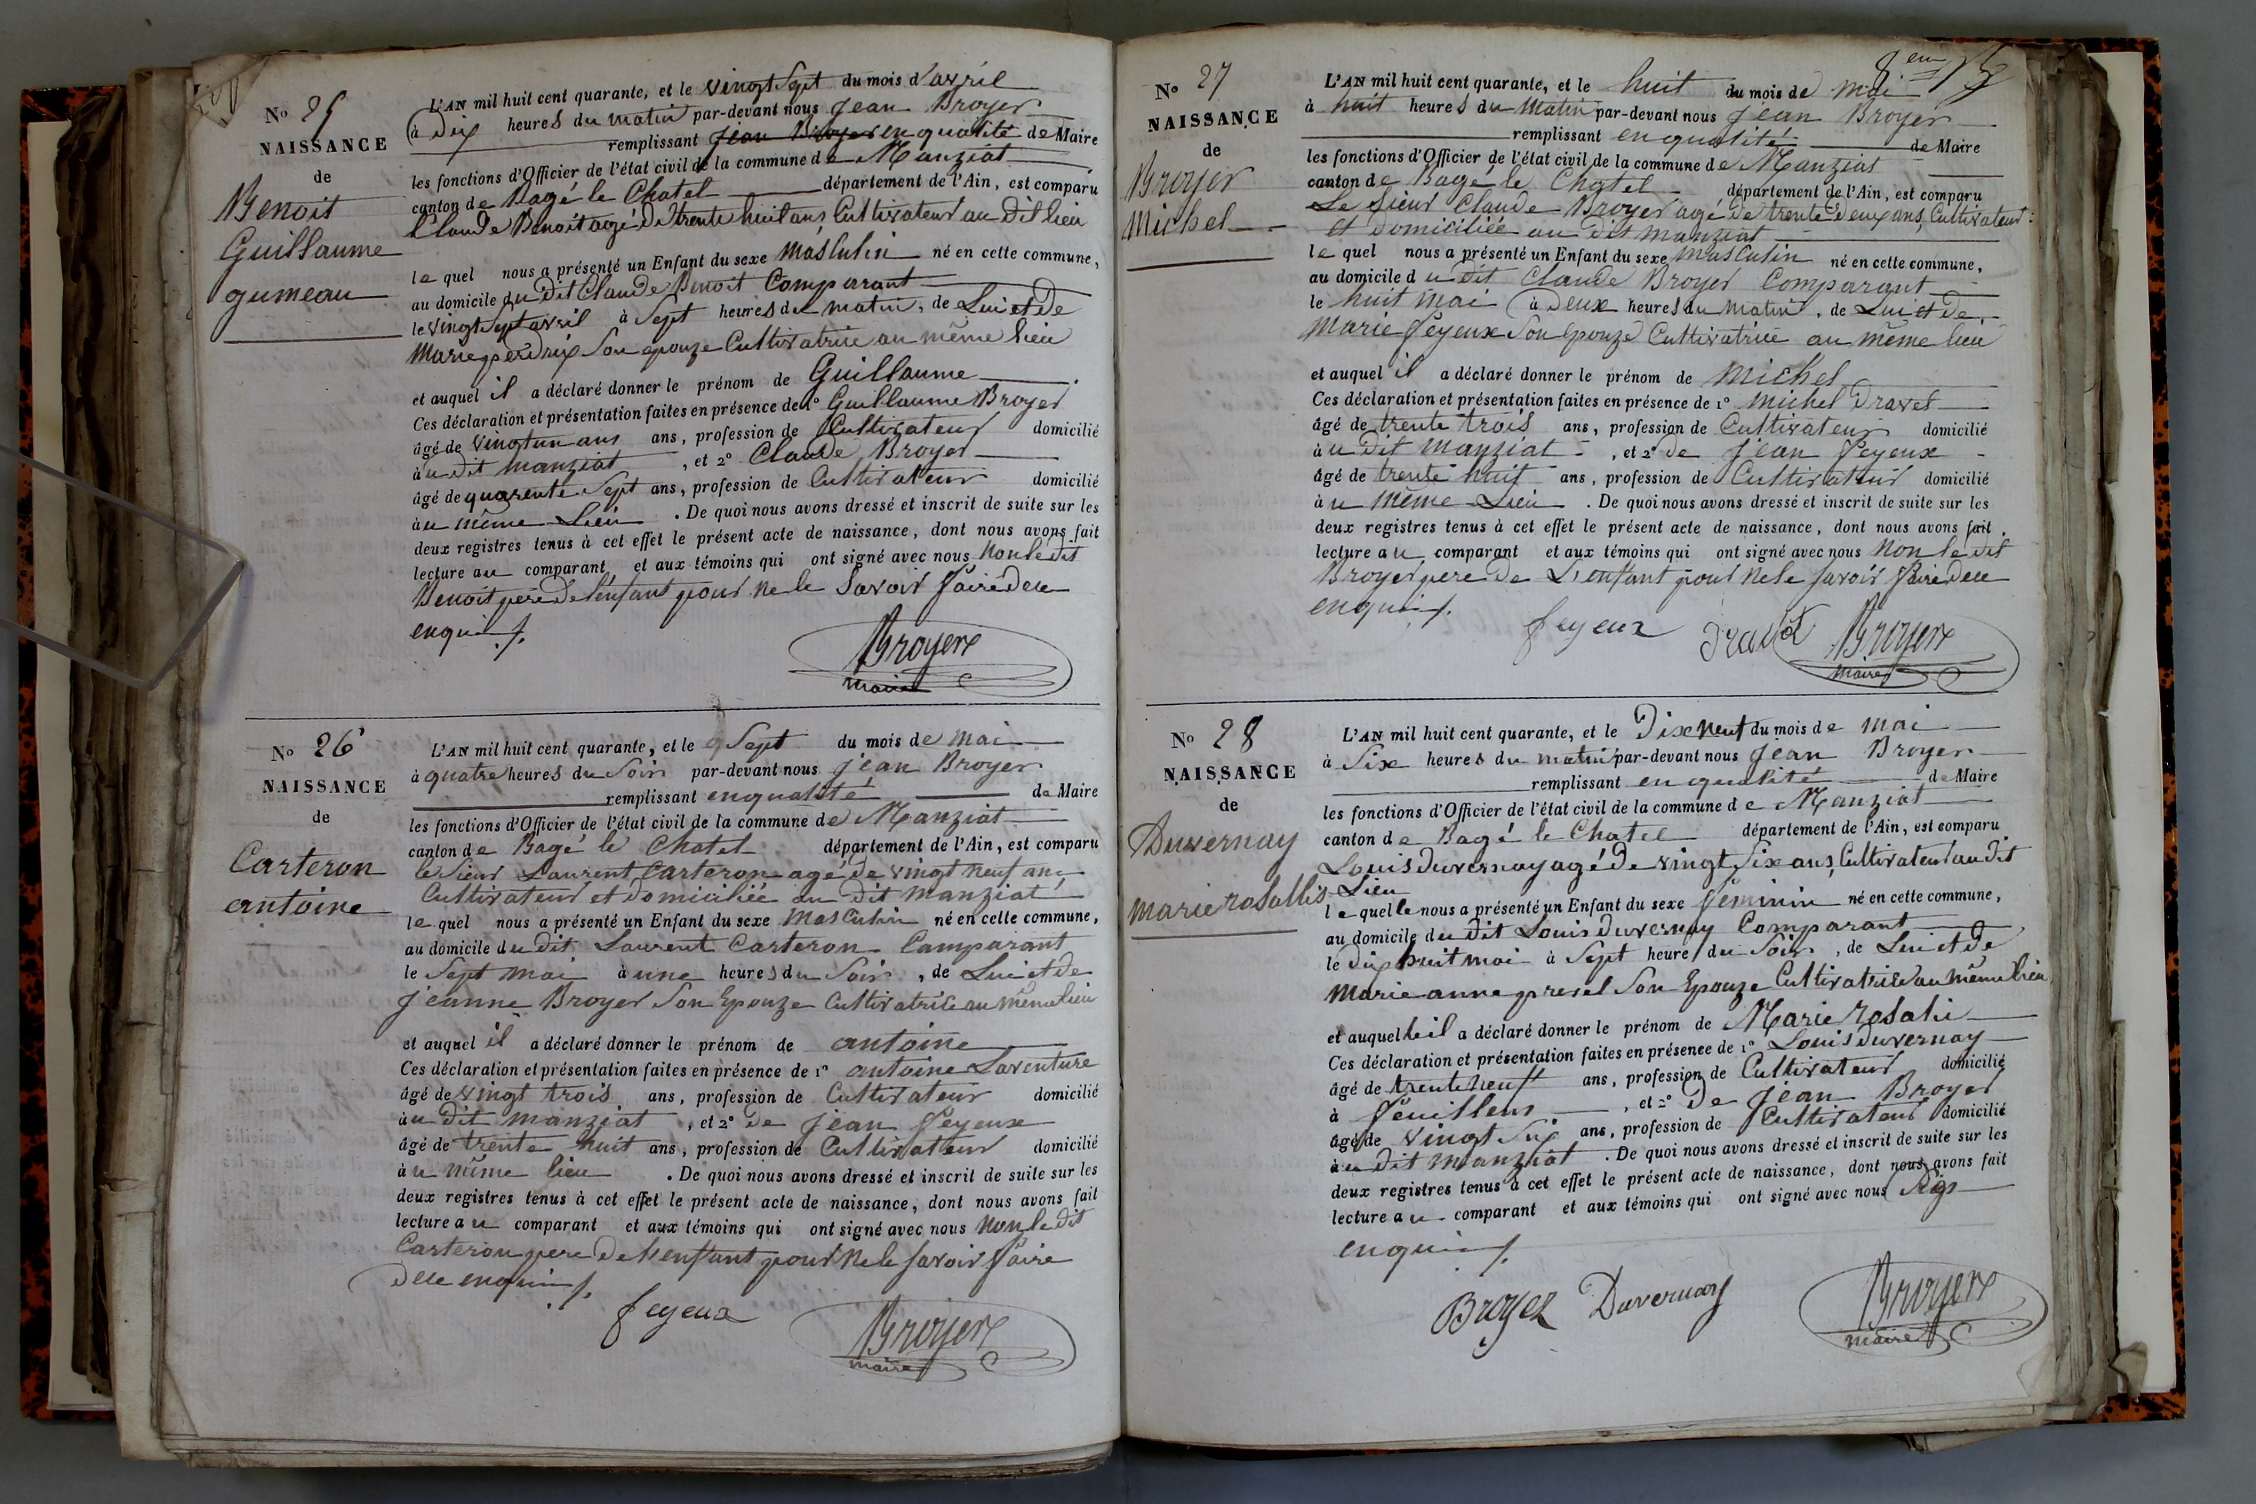 No 25
NAISSANCE
de
Benoit
Guillaume
gumeau
L'AN mil huit cent quarante, et le vingt Sept du mois d'avril
à Dix heures du matin par-devant nous Jean Broyer
remplissant Jean Broyer en qualité de Maire
les fonctions d'Officier de l'état civil de la commune de Manziat
canton de Bagé le Chatel département de l'Ain, est comparu
Claude Benoit agé de trente huit ans Cultivateur au dit lieu
le quel nous a présenté un Enfant du sexe Masculin né en cette commune,
au domicile du dit Claude Benoit Comparant
le vingt Sept avril à Sept heures du matin, de Lui et de
Marie perdrix Son epouze Cultivatrice au même lieu
et auquel il a déclaré donner le prénom de Guillaume
Ces déclaration et présentation faites en présence de 1° Guillaume Broyer
âgé de vingt un ans ans, profession de Cultivateur domicilié
àu dit manziat, et 2° Claude Broyer
âgé de quarente Sept ans, profession de Cultivateur domicilié
àu même Lieu. De quoi nous avons dressé et inscrit de suite sur les
deux registres tenus à cet effet le présent acte de naissance, dont nous avons fait
lecture au comparant et aux témoins qui ont signé avec nous Non le dit
Benoit pere de l'enfant pour ne le Savoir faire de ce
enqui /.
Broyer
maire
No 26
NAISSANCE
de
Carteron
antoine
L'AN mil huit cent quarante, et le Sept du mois de mai
à quatre heures du Soir par-devant nous Jean Broyer
remplissant en qualité de Maire
les fonctions d'Officier de l'état civil de la commune de Manziat
canton de Bagé le Chatel département de l'Ain, est comparu
le Sieur Laurent Carteron agé de vingt neuf ans
Cultivateur et domiciliée au dit manziat
le quel nous a présenté un Enfant du sexe Masculin né en cette commune,
au domicile du dit Laurent Carteron Comparant
le Sept mai à une heures du Soir, de Lui et de
Jeanne Broyer Son Epouze Cultivatrice au même lieu
et auquel il a déclaré donner le prénom de antoine
Ces déclaration et présentation faites en présence de 1° antoine Laventure
âgé de vingt trois ans, profession de Cultivateur domicilié
àu dit manziat, et 2° de Jean Feyeux
âgé de trente huit ans, profession de Cultivateur domicilié
àu même lieu. De quoi nous avons dressé et inscrit de suite sur les
deux registres tenus à cet effet le présent acte de naissance, dont nous avons fait
lecture au comparant et aux témoins qui ont signé avec nous Non le dit
Carteron pere de l'enfant pour ne le savoir faire
de ce enqui /.
feyeux
Broyer
maire
No 27
NAISSANCE
de
Broyer
Michel
L'AN mil huit cent quarante, et le huit du mois de mai
à huit heures du Matin par-devant nous Jean Broyer
remplissant en qualité de Maire
les fonctions d'Officier de l'état civil de la commune de Manziat
canton de Bagé le Chatel département de l'Ain, est comparu
Le Sieur Claude Broyer agé de trente deux ans, Cultivateur
et domiciliée au dit manziat
le quel nous a présenté un Enfant du sexe Masculin né en cette commune,
au domicile du dit Claude Broyer Comparant
le huit mai à Deux heures du Matin, de Lui et de
Marie Feyeux Son Epouze Cultivatrice au même lieu
et auquel il a déclaré donner le prénom de Michel
Ces déclaration et présentation faites en présence de 1° Michel Dravet
âgé de trente trois ans, profession de Cultivateur domicilié
àu dit manziat, et 2° de Jean Feyeux
âgé de trente huit ans, profession de Cultivateur domicilié
àu même Lieu. De quoi nous avons dressé et inscrit de suite sur les
deux registres tenus à cet effet le présent acte de naissance, dont nous avons fait
lecture au comparant et aux témoins qui ont signé avec nous Non le dit
Broyer pere de L'enfant pour ne le savoir faire de ce
enqui /.
feyeux
Broyer
maire
No 28
NAISSANCE
de
Duvernay
marie rosallis
L'AN mil huit cent quarante, et le Dix neuf du mois de mai
à Six heures du matin par-devant nous Jean Broyer
remplissant en qualité de Maire
les fonctions d'Officier de l'état civil de la commune de Manziat
canton de Bagé le Chatel département de l'Ain, est comparu
Louis Duvernay agé de vingt Six ans, Cultivateur au dit
Lieu
le quelle nous a présenté un Enfant du sexe féminin né en cette commune,
au domicile du dit Louis Duvernay Comparant
le dix huit mai à Sept heure du Soir, de Lui et de
Marie anne prevel Son Epouze Cultivatrice au même lieu
et auquelle il a déclaré donner le prénom de Marie rosali
Ces déclaration et présentation faites en présence de 1° Louis Duvernay
âgé de trente neuf ans, profession de Cultivateur domicilié
à feuillens, et 2° de Jean Broyer
âgé de vingt Six ans, profession de Cultivateur domicilié
àu dit manziat. De quoi nous avons dressé et inscrit de suite sur les
deux registres tenus à cet effet le présent acte de naissance, dont nous avons fait
lecture au comparant et aux témoins qui ont signé avec nous
enqui /.
Broyer Duvernay
Broyer
maire